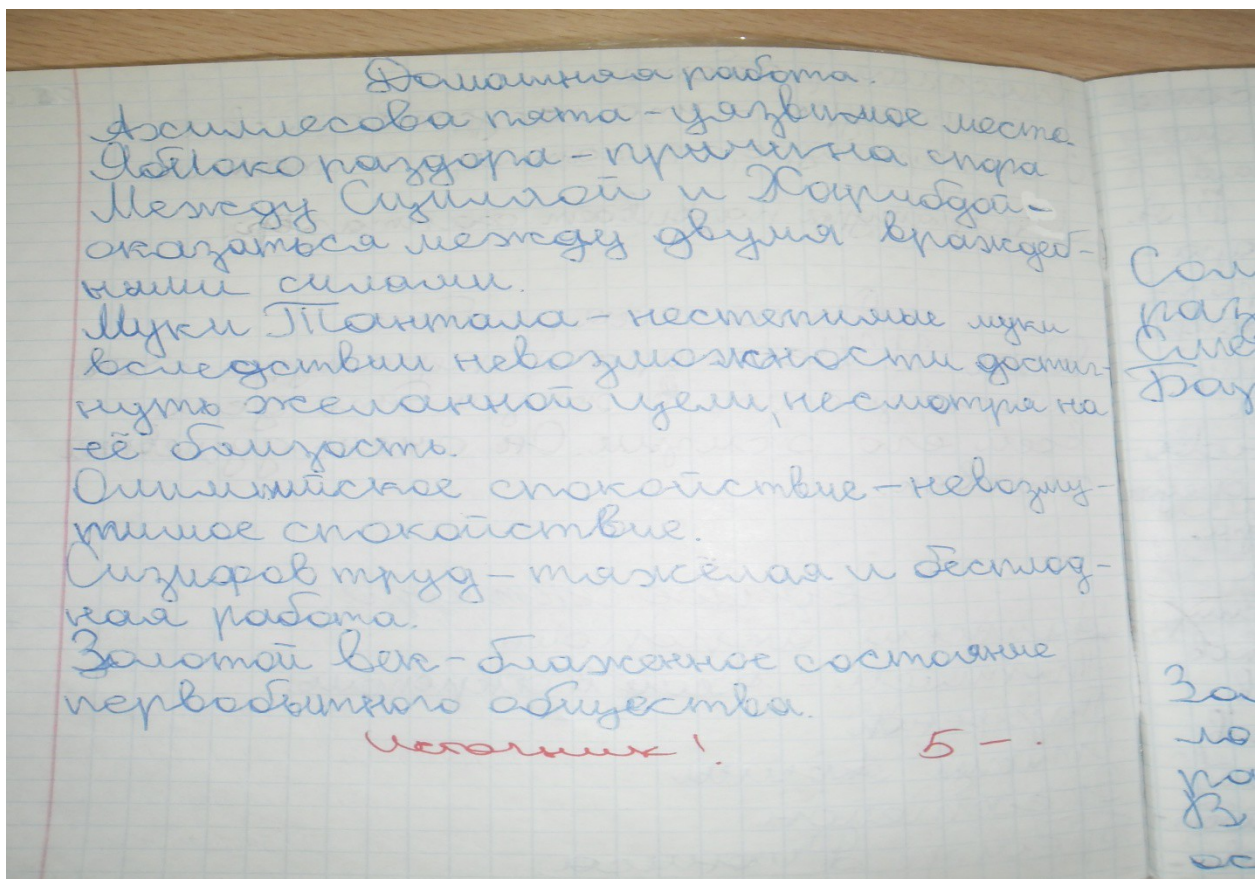 Домашняя работа.
Ахиллесова пята – уязвимое место.
Яблоко раздора – причина спора
Между Сциллой и Харибдой –
оказаться между двумя враждеб-
ными силами.
Муки Тантала – нестепимые муки
вследствии невозможности достиг-
нуть желанной цели, несмотря на
её близость.
Олимпийское спокойствие – невозму-
тимое спокойствие.
Сизифов труд – тяжёлая и бесплод-
ная работа.
Золотой век – блаженное состояние
первобытного общества.
Источник! 5 – .
Сом
раз
Баз
За
ло
ра
В
ос